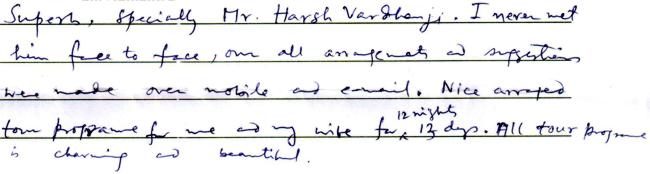 Superb, specially Mr. Harsh Vardhanji. I never met
him face to face, our all arrangements and suggestions
were made over mobile and e-mail. Nice arranged
tour programe for me and my wife for 12 nights 13 days. All tour programe
is charming and beautiful.